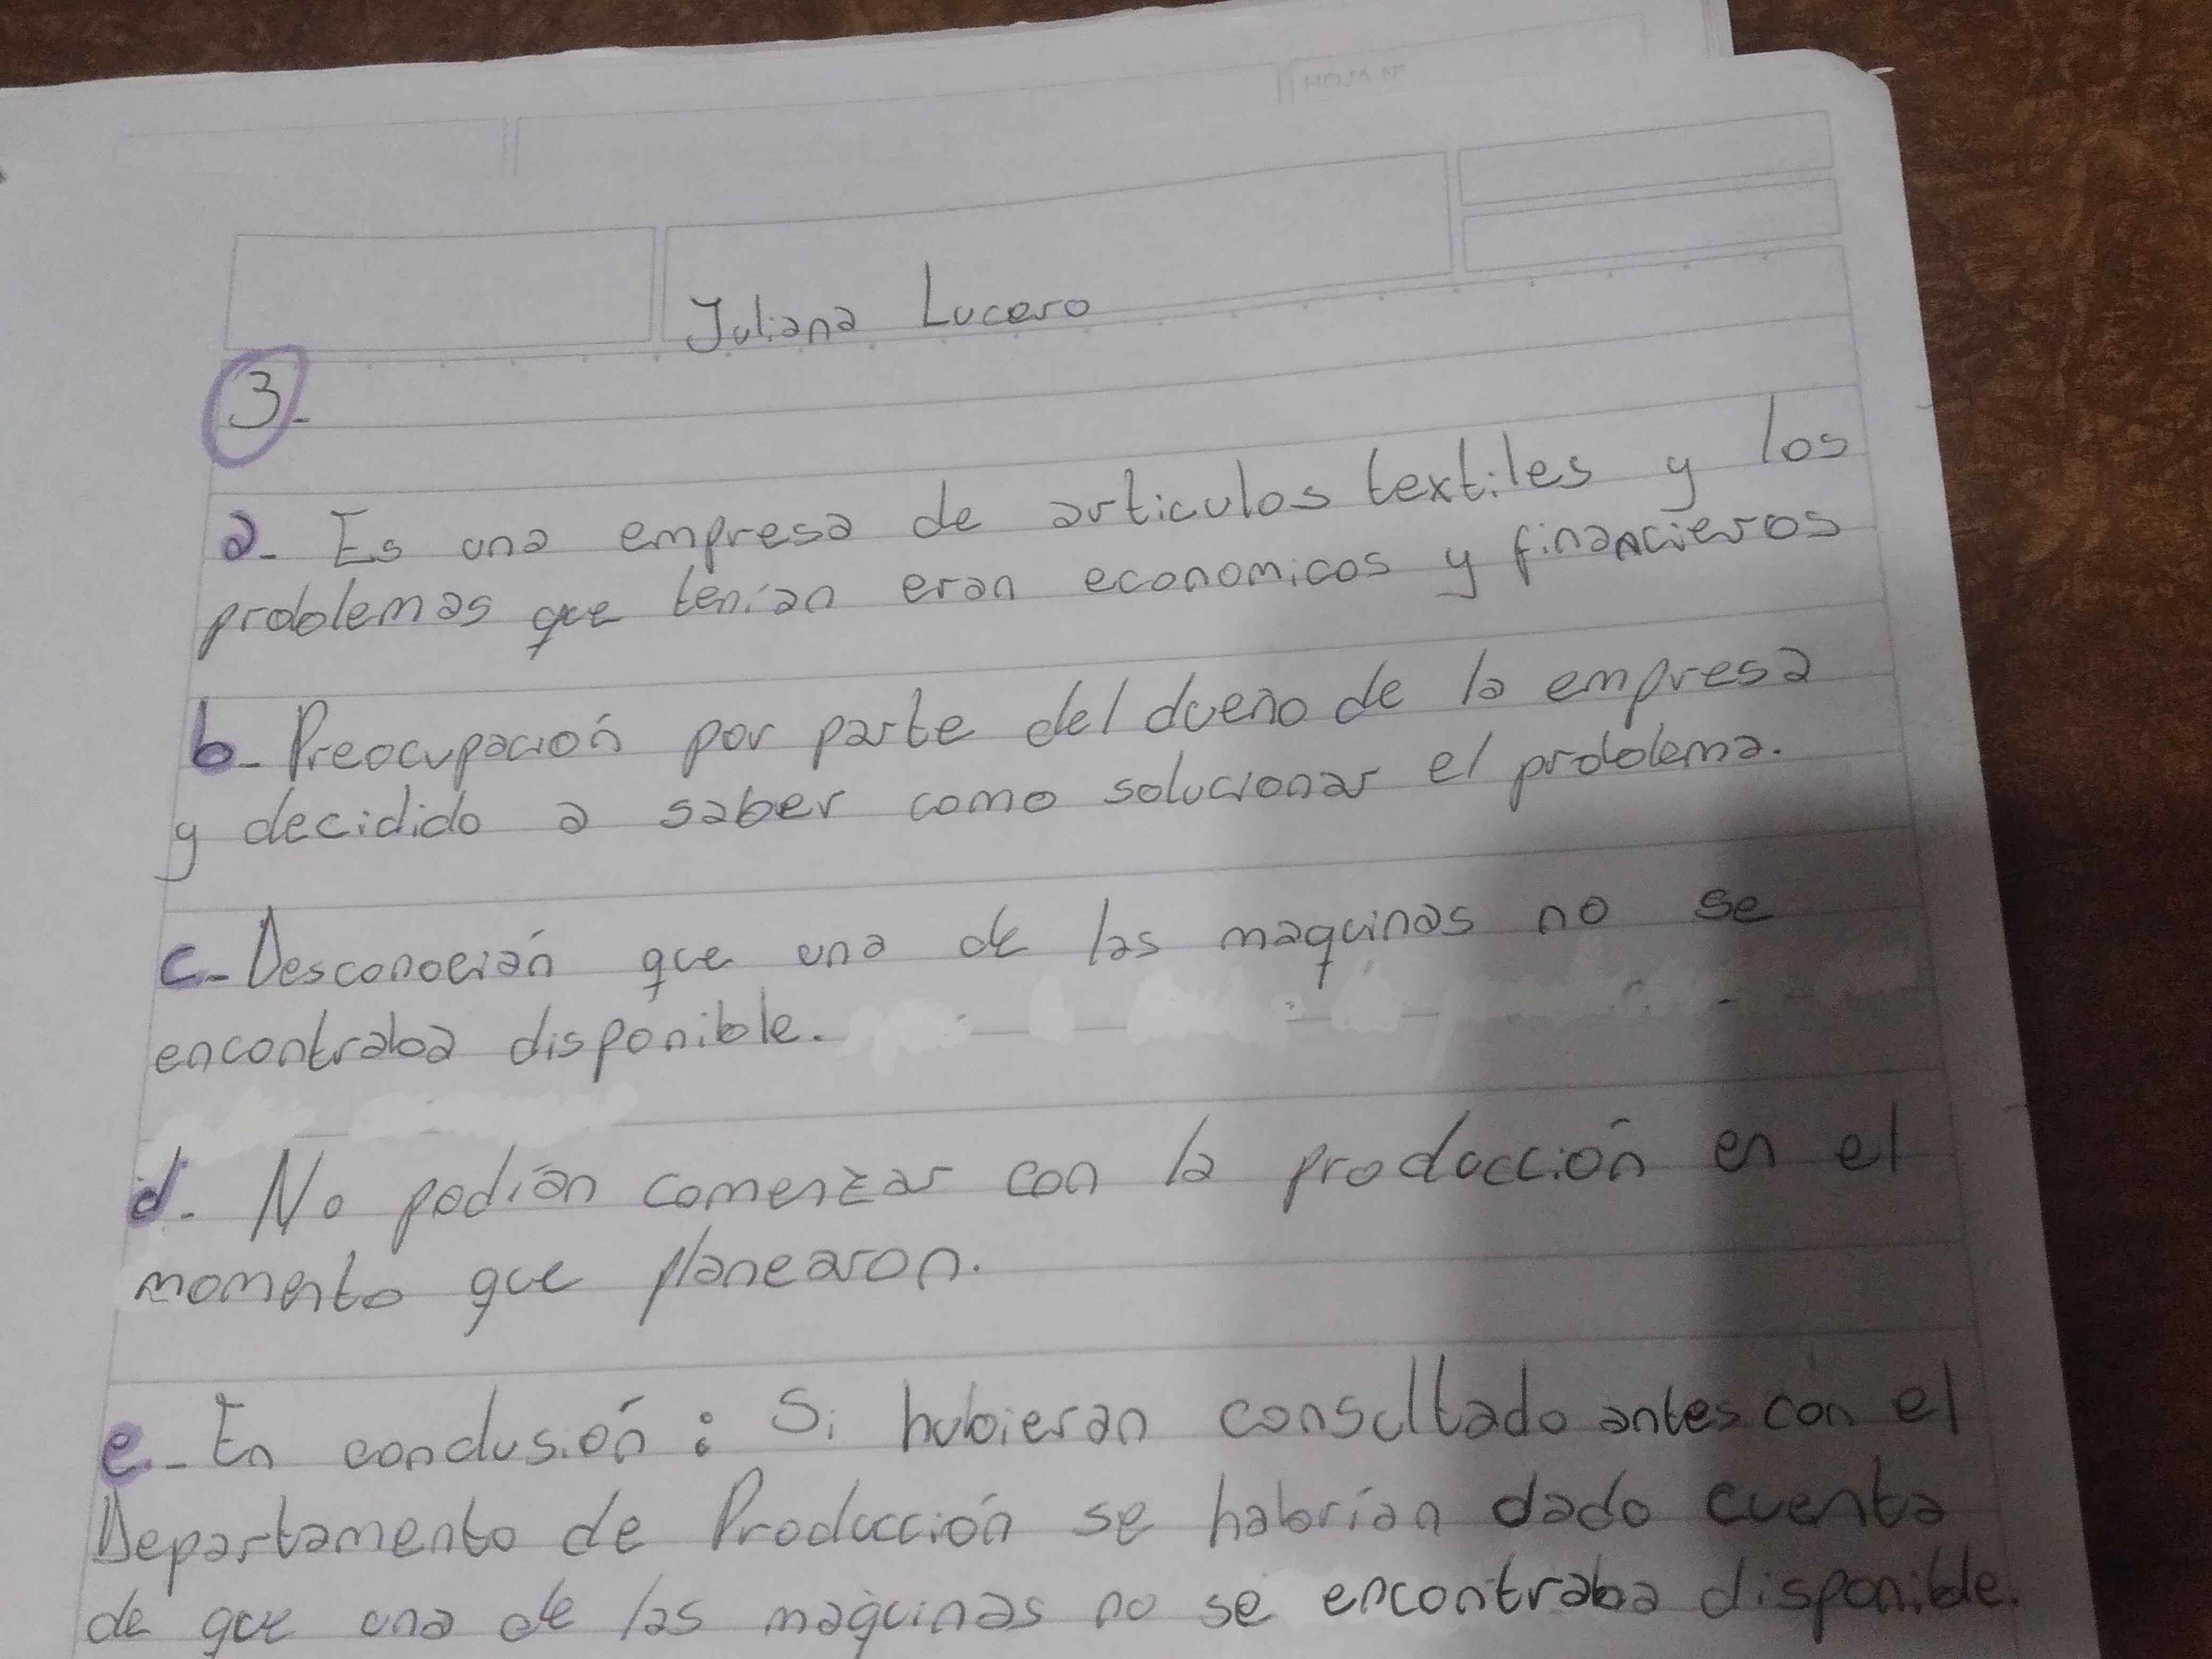 HOJA N°
Juliana Lucero
3-
a- Es una empresa de articulos textiles y los
problemas que tenían eran economicos y financieros
b- Preocupación por parte del dueño de la empresa
y decidido a saber como solucionar el problema.
c- Desconocían que una de las maquinas no se
encontraba disponible.
d- No podían comenzar con la producción en el
momento que planearon.
e- En conclusión: Si hubieran consultado antes con el
Departamento de Producción se habrían dado cuenta
de que una de las maquinas no se encontraba disponible.